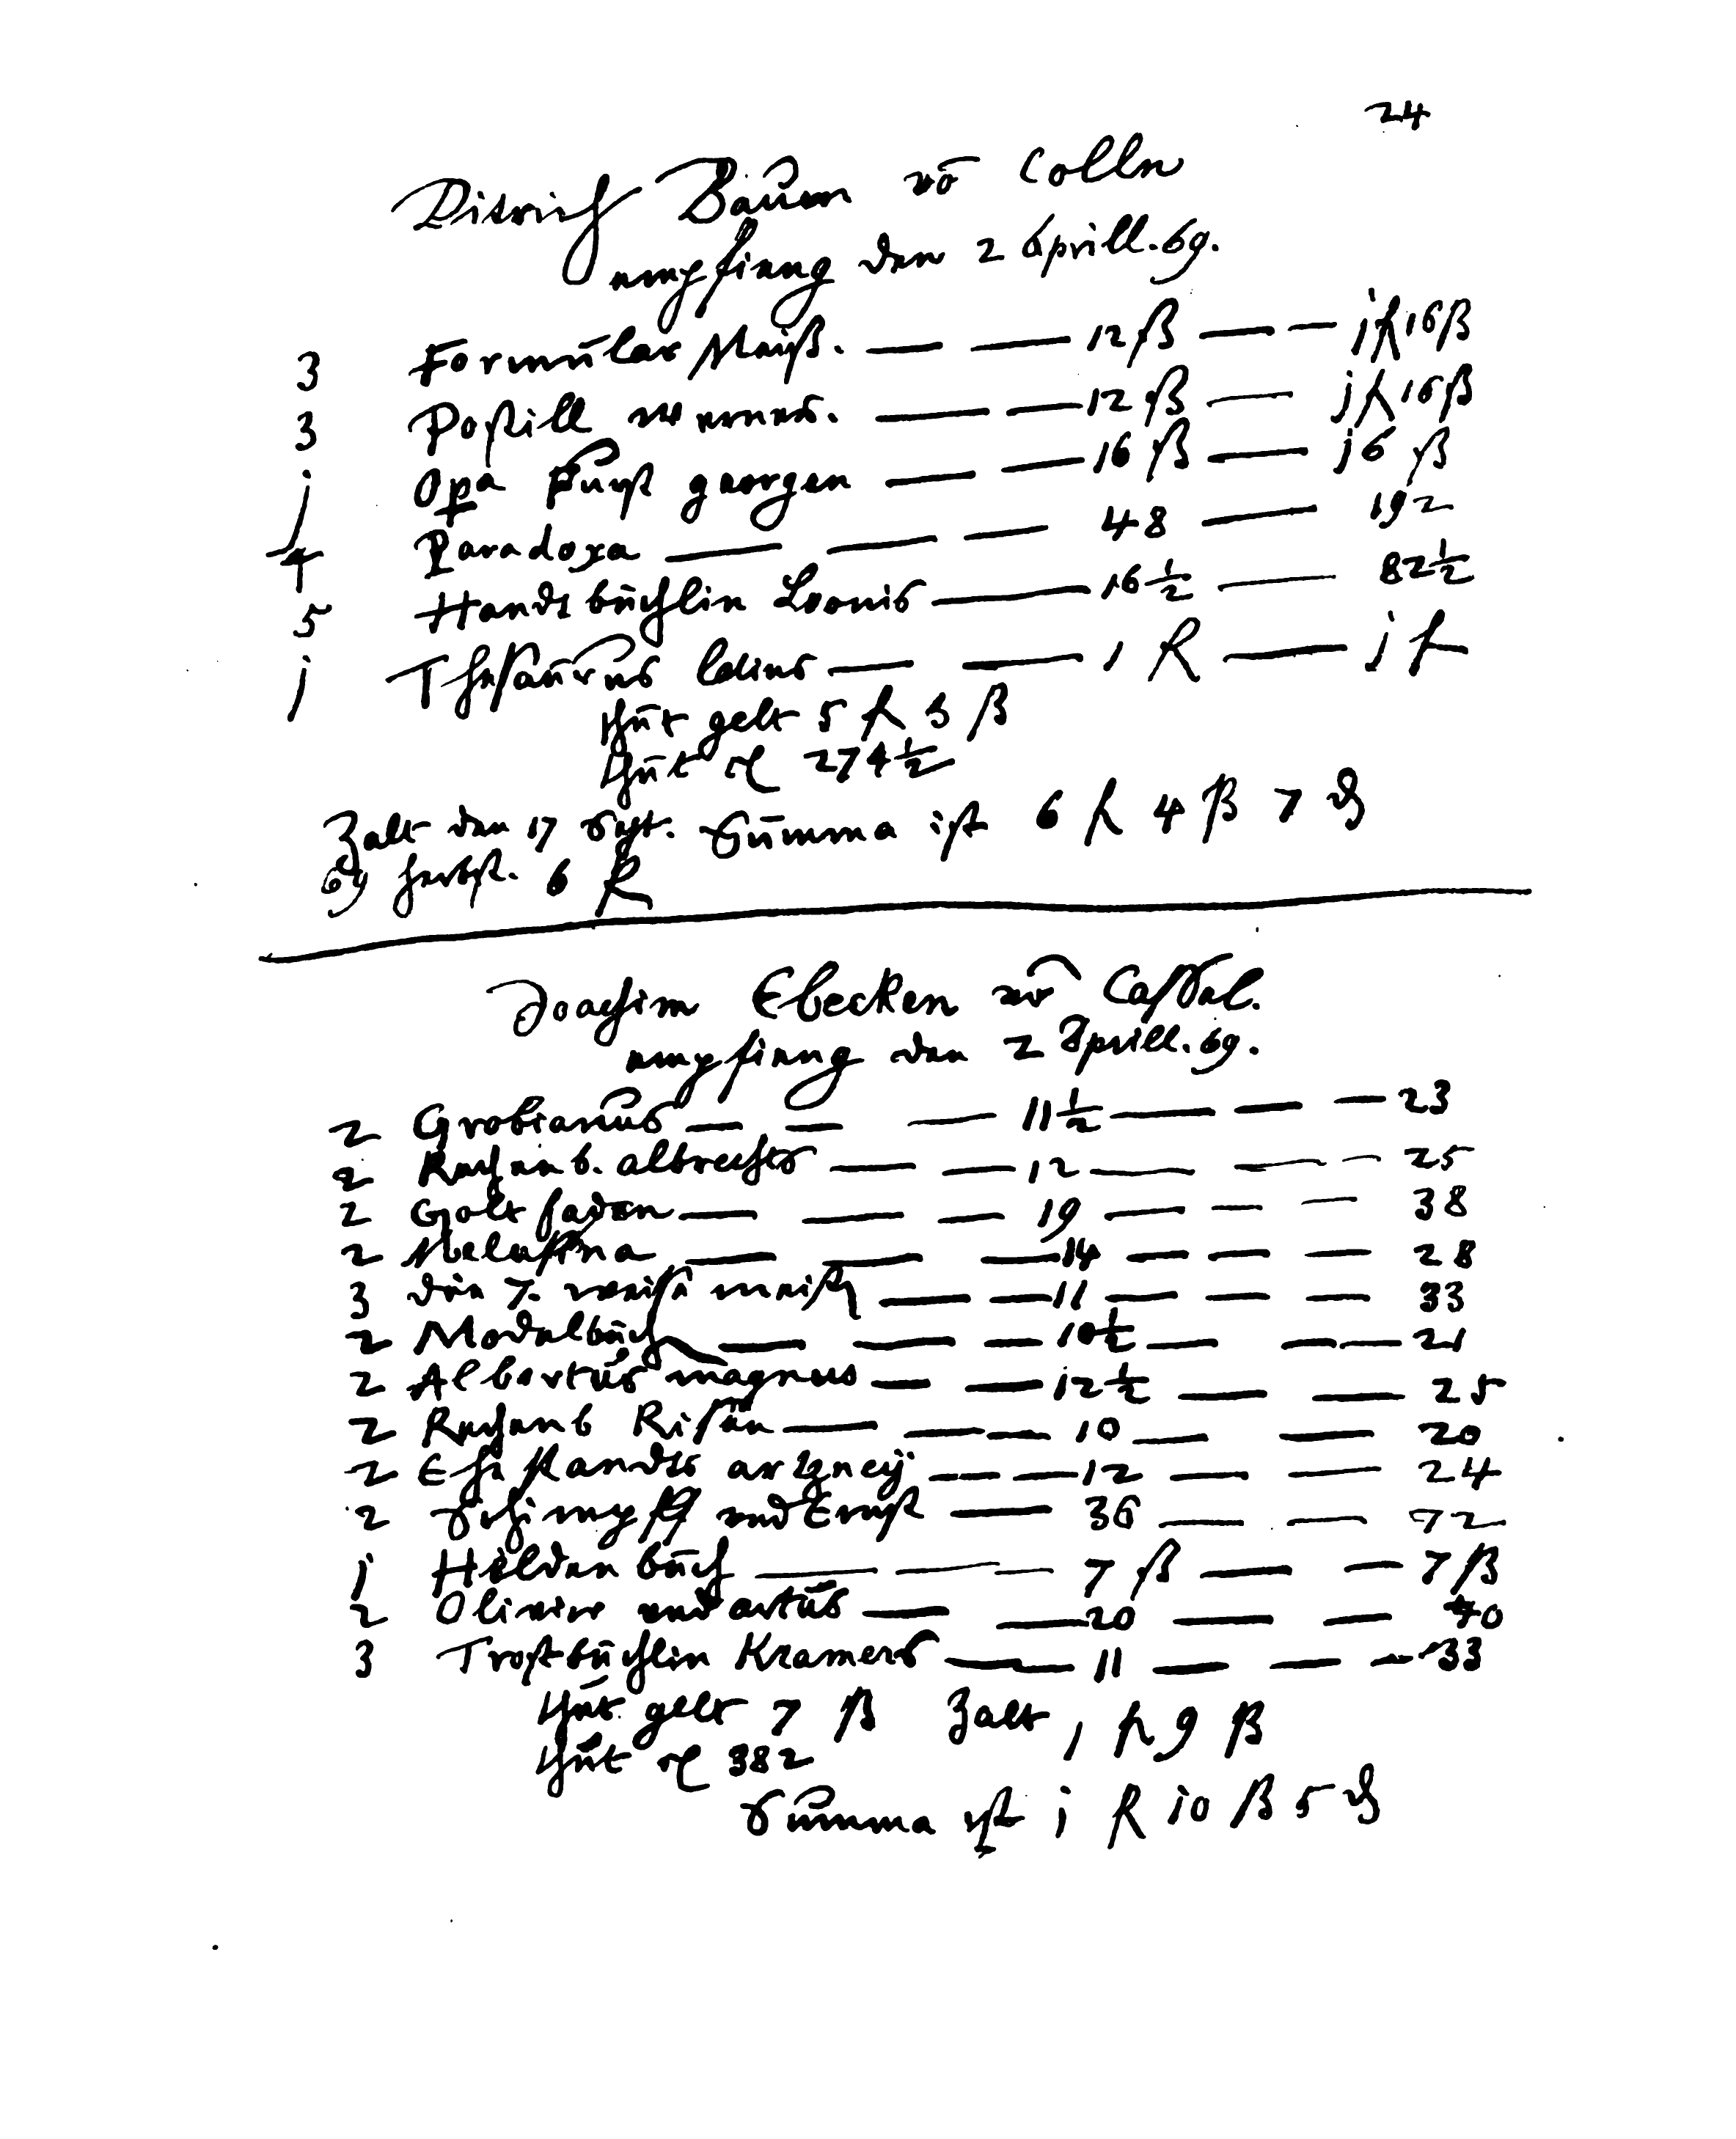 24
Ditrich Baum võ Colln
empfieng den 2 Aprill. 69.
3 Formular Maiß. — — 12 ß — — j fl 16 ß
3 Postill — — 12 ß — j fl 16 ß
j Opa Furst georgen — — 16 ß — j6 ß
4 Paradoxa — — — 48 — 192
5 Handtbüchlin Leonis — 16½ — 82½
j Thesaurus — — 1 fl — j fl
thut gelt 5 fl 3 ß
thut 274½
Zalt den 17 Sept. Summa ist 6 fl 4 ß 7 ₰
69 herbst. 6 fl
Joachim Ebecken võ Cassel.
empfieng den 2 Aprill. 69.
2 Grobianus — — — 11½ — — — 23
2 Rechenb. albrechts — — 12 — — — 25
2 Golt faden — — — 19 — — — 38
2 Melusina — — — 14 — — — 28
3 die 7. weise meist — — 11 — — — 33
2 Modelbuch — — — 10½ — — — 21
2 Albertus magnus — — 12½ — — 25
2 Rechenb Risen — — — 10 — — 20
2 Ehstandts artzneÿ — — 12 — — 24
2 Schimpff und Ernst — 36 — — 72
j Helden buch — — — 7 ß — — 7 ß
2 Olivier und artus — — 20 — — 40
3 Trostbüchlin Kramers — — 11 — — — 33
thut gelt 7 ß Zalt 1 fl 9 ß
thut 382
Summa ist j fl j0 ß 5 ₰